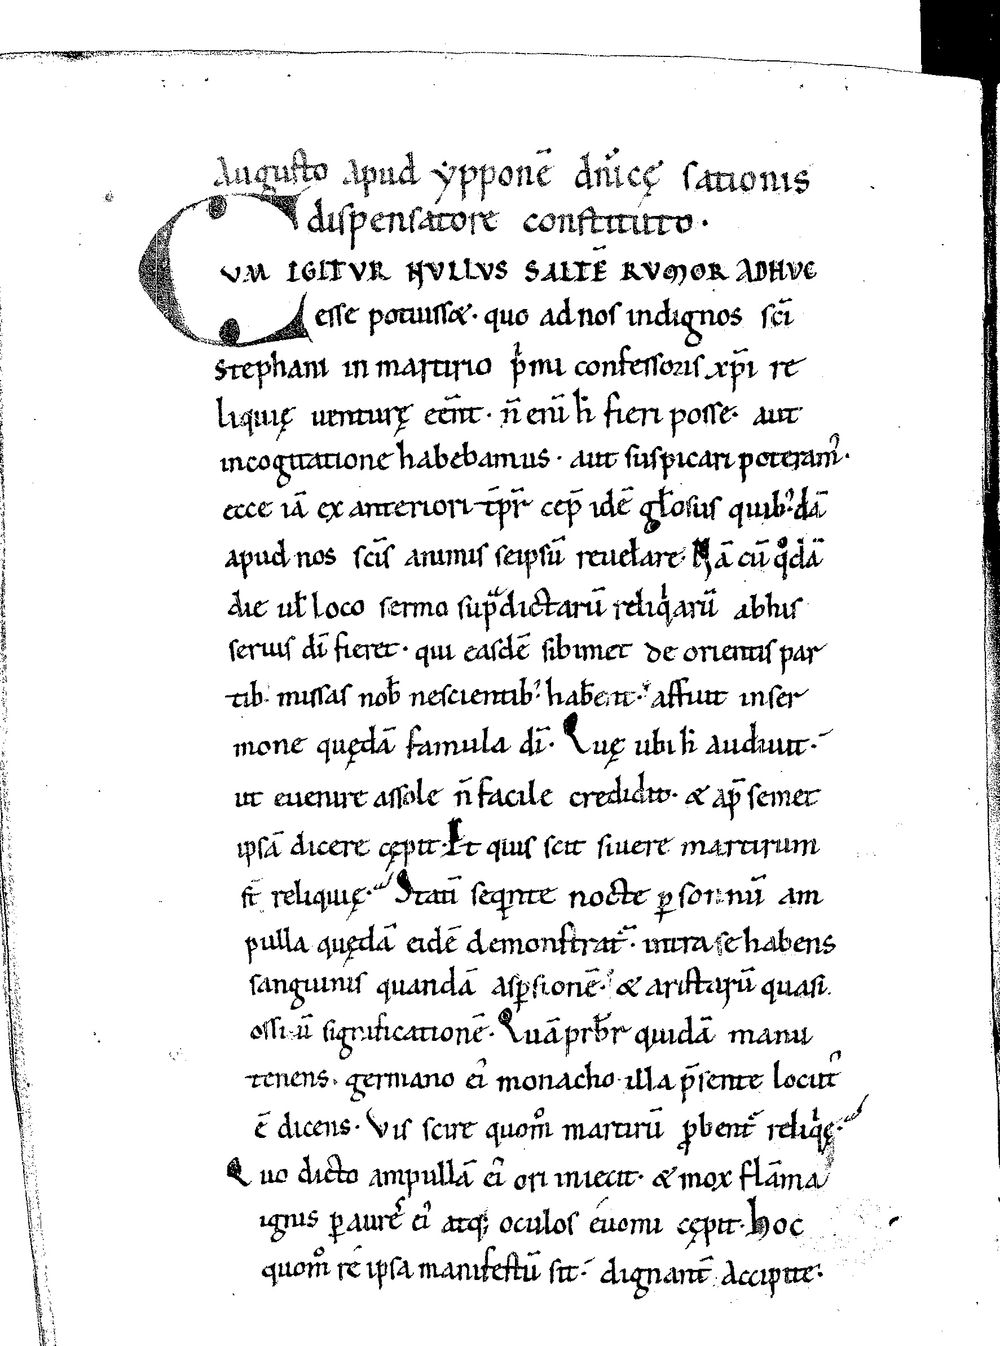 Augusto apud ypponē dn̄icę sationis
dispensatore constituto·
CUM IGITUR NULLUS SALTĒ RUMOR ADHUC
esse potuisset· quo ad nos indignos sc̄i
stephani in martirio p̄mi confessoris xp̄i re
liquię uenturę eēnt· n̄ enī li fieri posse· aut
in cogitatione habebamus· aut suspicari poteram᾽·
ecce iā ex anteriori tp̄r cep̄ idē gl̄osus quib᾽dā
apud nos sc̄is animis seipsū reuelare· Nā cū qͦdā
die ul̄ loco sermo sup̄dictarū reliqͥarū abhis
seruis dī fieret· qui easdē sibimet de orientis par
tib· missas nob̄ nescientib᾽ hab̄ent· affuit in ser
mone quędā famula dī· Quę ubi li audiuit·
ut euenire assole n̄ facile credidit· & ap̄ semet
ipsā dicere cępit· Et quis scit si uere martirum
st̄ reliquię· Statī seqn̄te nocte ꝑ somnū am
pulla quędā eidē demonstrat᷑· intra se habens
sanguinis quandā aspsionē· & aristarū quasi
ossiū significationē· Quā prb̄r quidā manu
tenens· germano ei᾽ monacho illa p̄sente locut᾽
ē dicens· Vis scire quom̊ martirū ꝓbent᷑ reliqͥę·
Quo dicto ampullā ei᾽ ori iniecit· & mox flāma
ignis ꝑ aurē ei᾽ atq; oculos euomi cępit· Hoc
quom̊ re ipsa manifestū sit· dignant᷑ accipite·